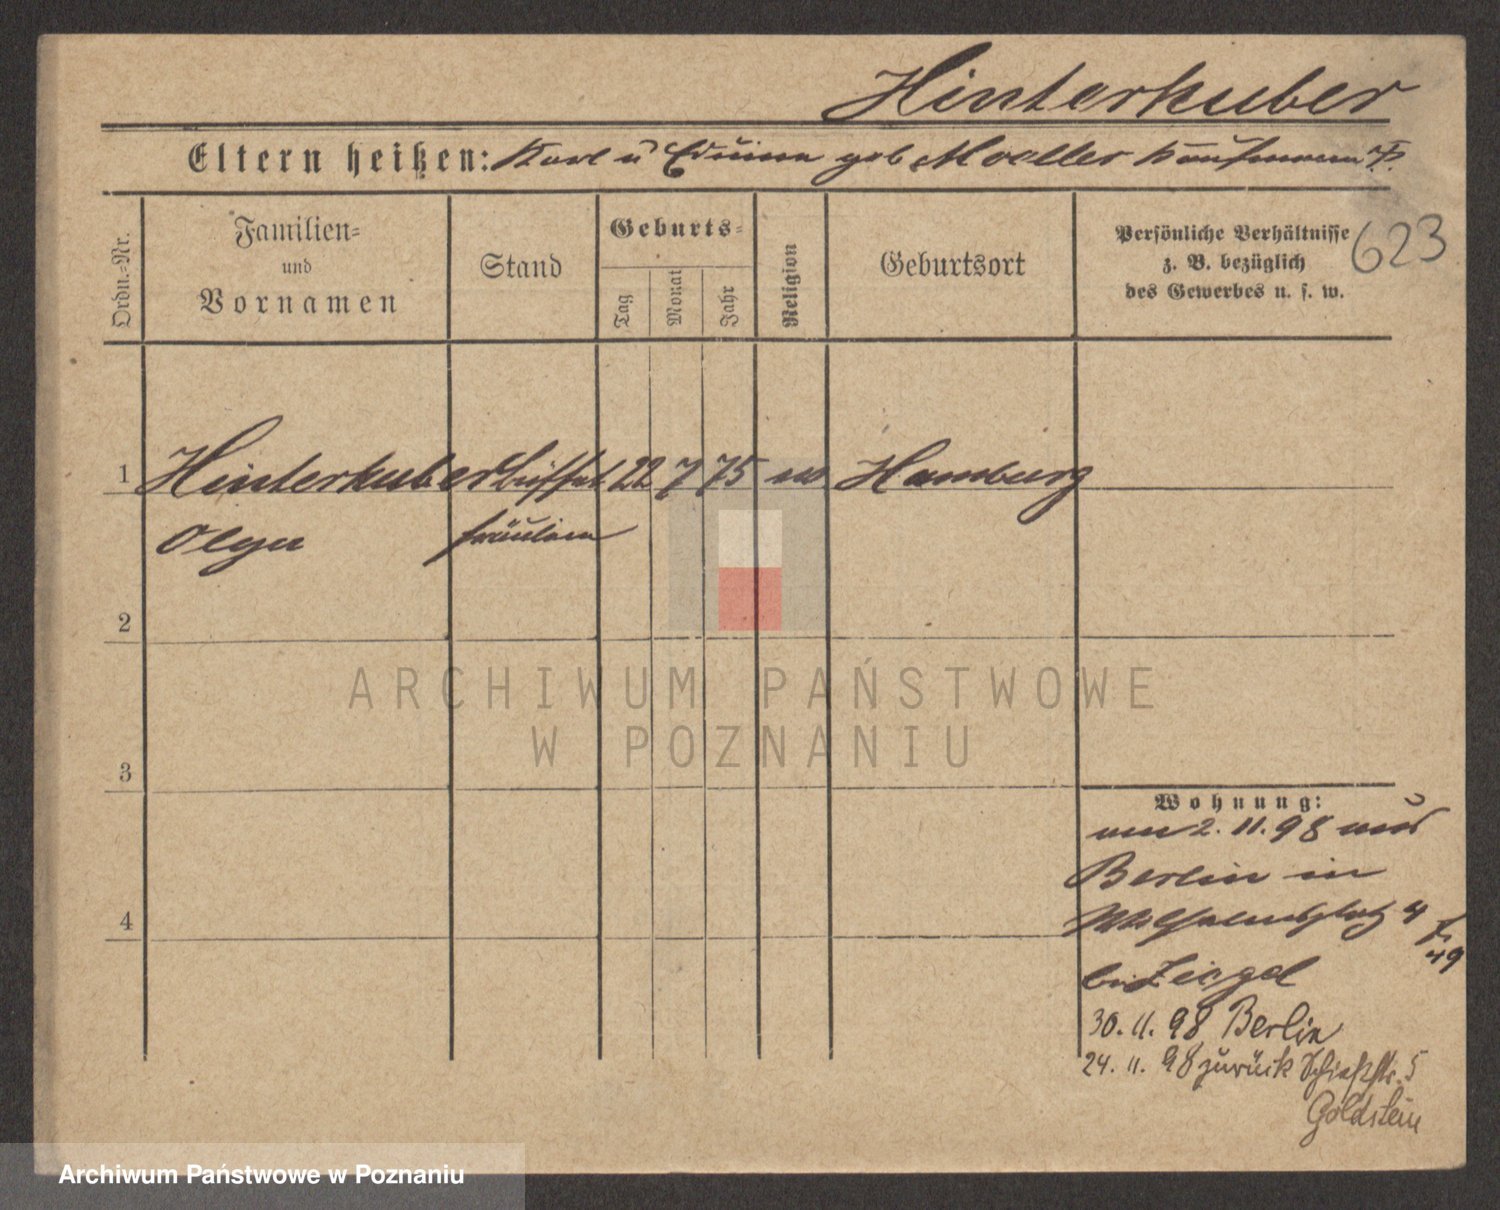 Hinterhuber
Eltern heißen: Karl u Edwina geb Moeller Kaufmann
623
Ordn.=Nr.
Familien=
und
Vornamen
Stand
Geburts=
Tag
Monat
Jahr
Religion
Geburtsort
Persönliche Verhältnisse
z. B. bezüglich
des Gewerbes u. s. w.
1 Hinterhuber Büffet 22 7 75 ev Hamburg
Olga fräulein
2
3
4
ARCHIWUM PAŃSTWOWE
W POZNANIU
Wohnung:
2. 11. 98 aus
Berlin in
Wilhelmsplatz 4
bei Ziegel
49
30. 11. 98 Berlin
24. 11. 98 zurück Schießstr. 5
Goldstein
Archiwum Państwowe w Poznaniu